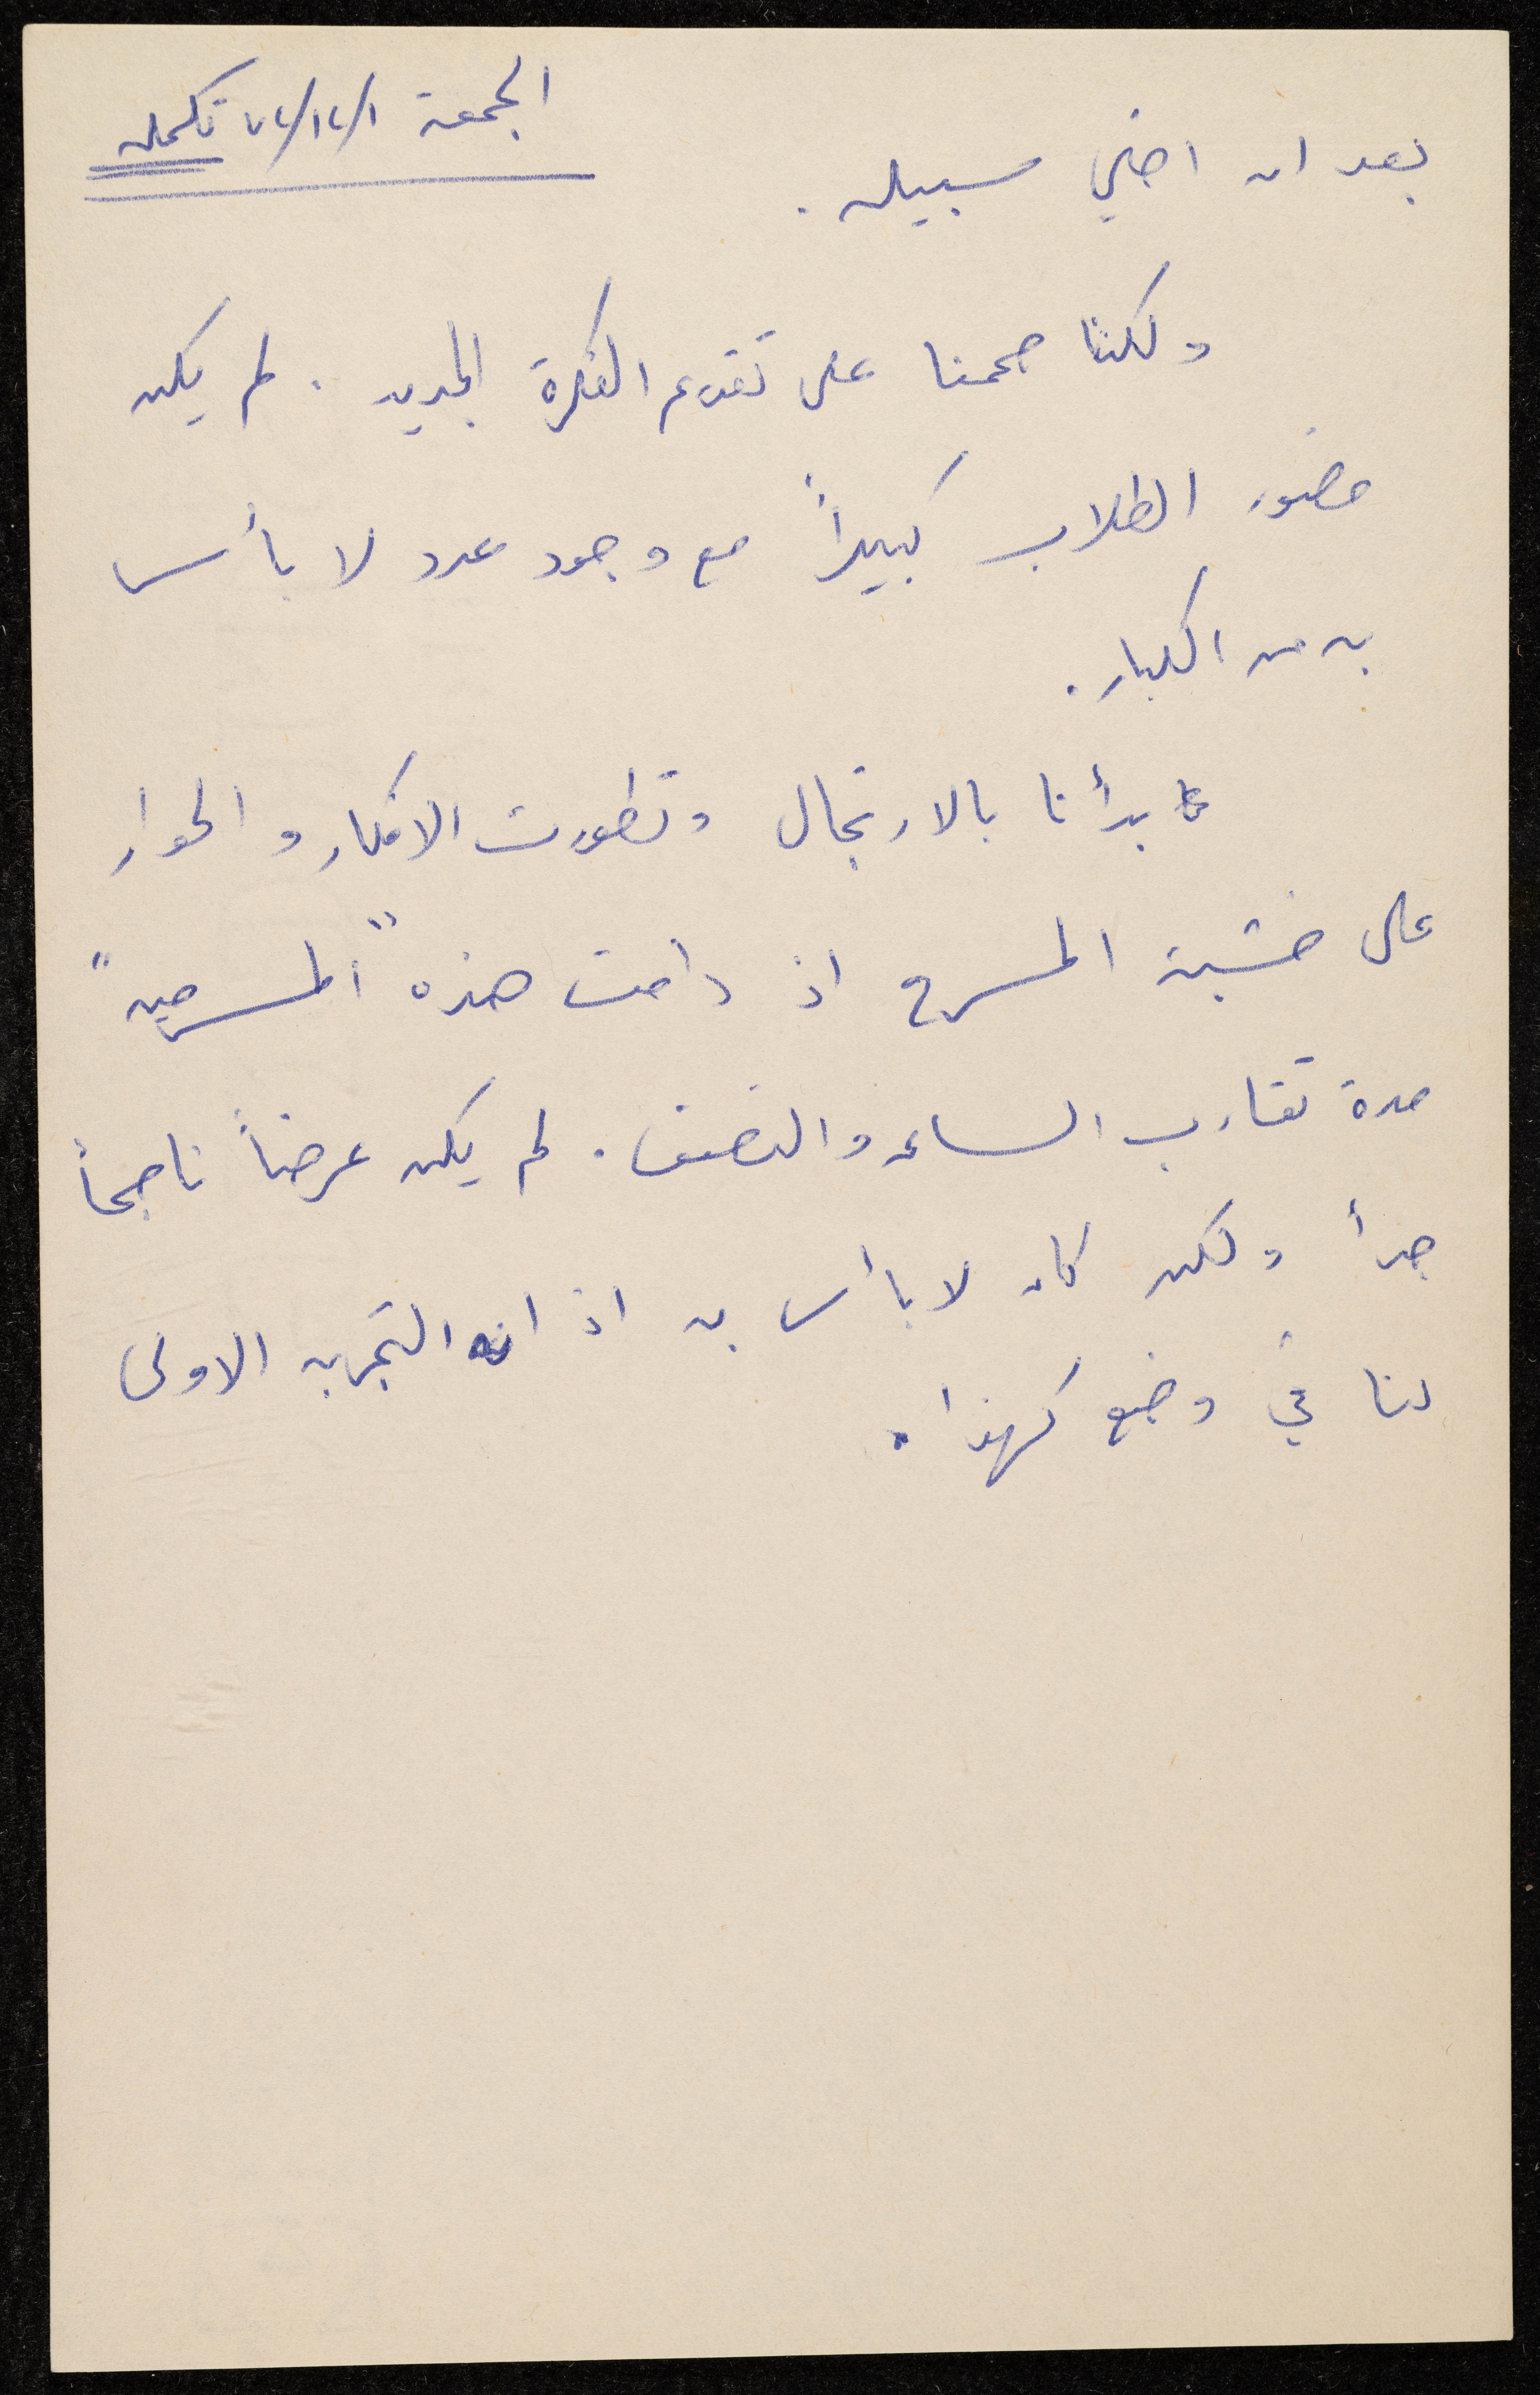 الجمعة ٧٢/١٢/١ تكملة
بعد ان اخلي سبيله.
ولكننا صممنا على تقديم الفكرة الجديدة. لم يكن
حضور الطلاب كبيراً مع وجود عدد لا بأس
به من الكبار.
بدأنا بالارتجال وتطورت الافكار والحوار
على خشبة المسرح اذ دامت هذه "المسرحية"
مدة تقارب الساعة والنصف. لم يكن عرضاً ناجحاً
جداً ولكن كان لا بأس به اذ انه التجربة الاولى
لنا في وضع كهذا.